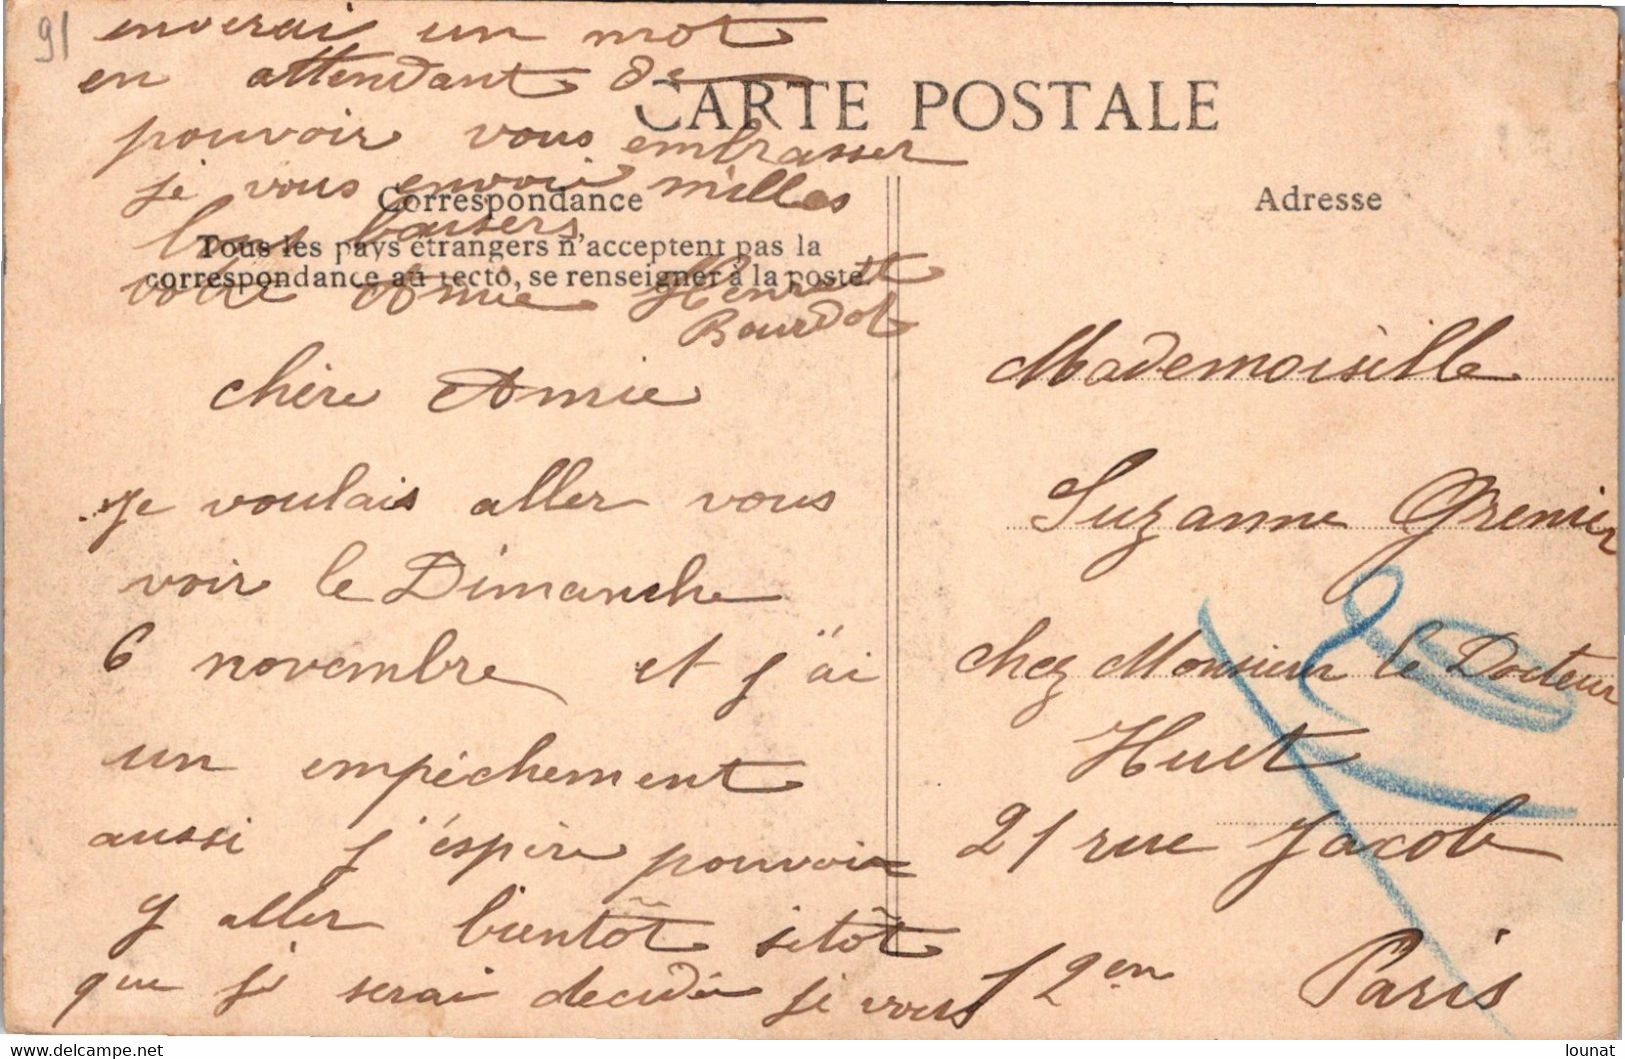 91
enverai un mot
en attendant de
pouvoir vous embrasser
je vous envoie milles
bons baisers
votre Amie Henriette
Bourdot
CARTE POSTALE
Correspondance
Tous les pays étrangers n'acceptent pas la
correspondance au recto, se renseigner à la poste.
chère Amie
Je voulais aller vous
voir le Dimanche
6 novembre et j'ai
un empéchement
aussi j'éspère pouvoir
y aller bientôt sitôt
que je serai decidée je vous
Adresse
Mademoiselle
Suzanne Grenier
chez Monsieur le Docteur
Huet
21 rue Jacob
Paris
delcampe.net
lounat